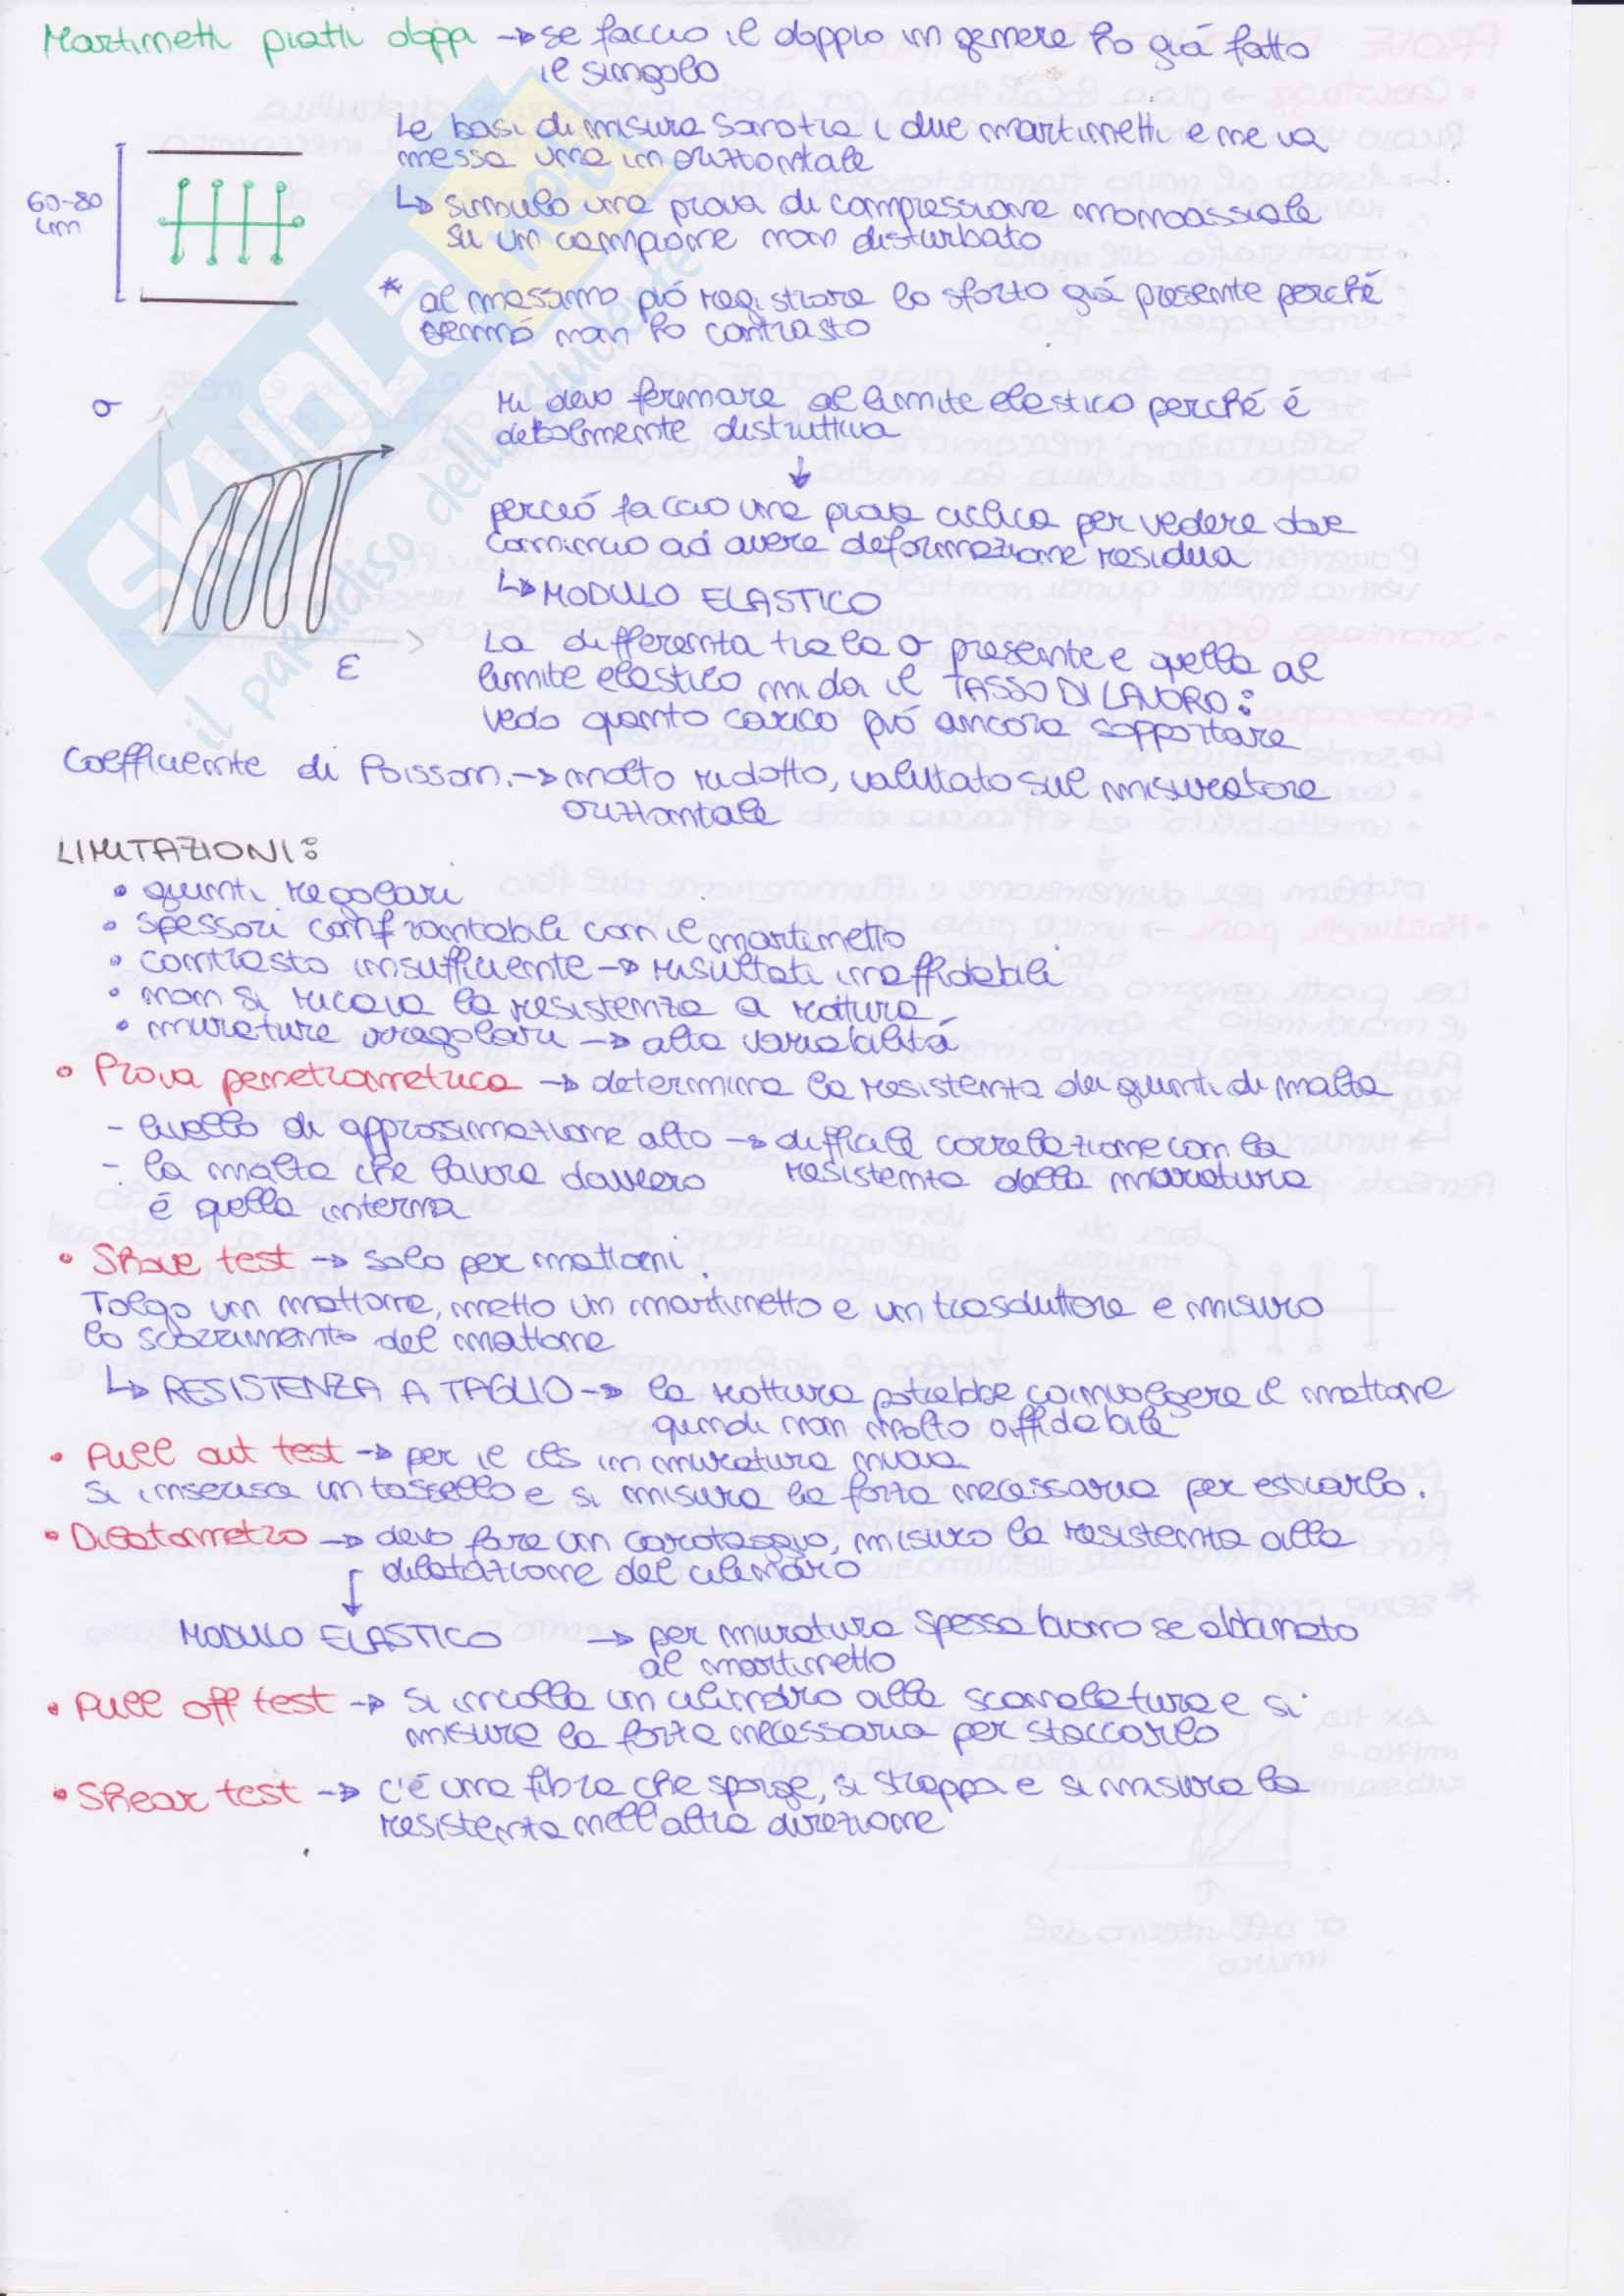 Martinetti piatti doppi → se faccio il doppio in genere ho già fatto
il singolo
Le basi di misura sono tra i due martinetti e ne va
messa una in orizzontale
60-80
cm
↳ simulo una prova di compressione monoassiale
su un campione non disturbato
* al massimo può registrare lo sforzo già presente perché
sennò non ho contrasto
σ
Mi devo fermare al limite elastico perché è
debolmente distruttiva
↓
perciò faccio una prova ciclica per vedere dove
comincio ad avere deformazione residua
↳ MODULO ELASTICO
ε
La differenza tra la σ presente e quella al
limite elastico mi da il TASSO DI LAVORO:
vedo quanto carico può ancora sopportare
Coefficiente di Poisson. → molto ridotto, valutato sul misuratore
orizzontale
LIMITAZIONI:
• giunti regolari
• spessori confrontabili con il martinetto
• contrasto insufficiente → risultati inaffidabili
• non si ricava la resistenza a rottura
• murature irregolari → alta variabilità
• Prova penetrometrica → determina la resistenza dei giunti di malta
- livello di approssimazione alto → difficile correlazione con la
resistenza della muratura
- la malta che lavora davvero
è quella interna
• Shove test → solo per mattoni.
Tolgo un mattone, metto un martinetto e un trasduttore e misuro
lo scorrimento del mattone
↳ RESISTENZA A TAGLIO → la rottura potrebbe coinvolgere il mattone
quindi non molto affidabile
• Pull out test → per il cls in muratura nuova
Si inserisce un tassello e si misura la forza necessaria per estrarlo.
• Dilatometro → devo fare un carotaggio, misuro la resistenza alla
dilatazione del cilindro
↓
MODULO ELASTICO → per muratura spessa buono se abbinato
al martinetto
• Pull off test → si incolla un cilindro alla scanalatura e si
misura la forza necessaria per staccarlo
• Shear test → c'è una fibra che sporge, si strappa e si misura la
resistenza nell'altra direzione
SKUOLA.NET
il paradiso dello studente